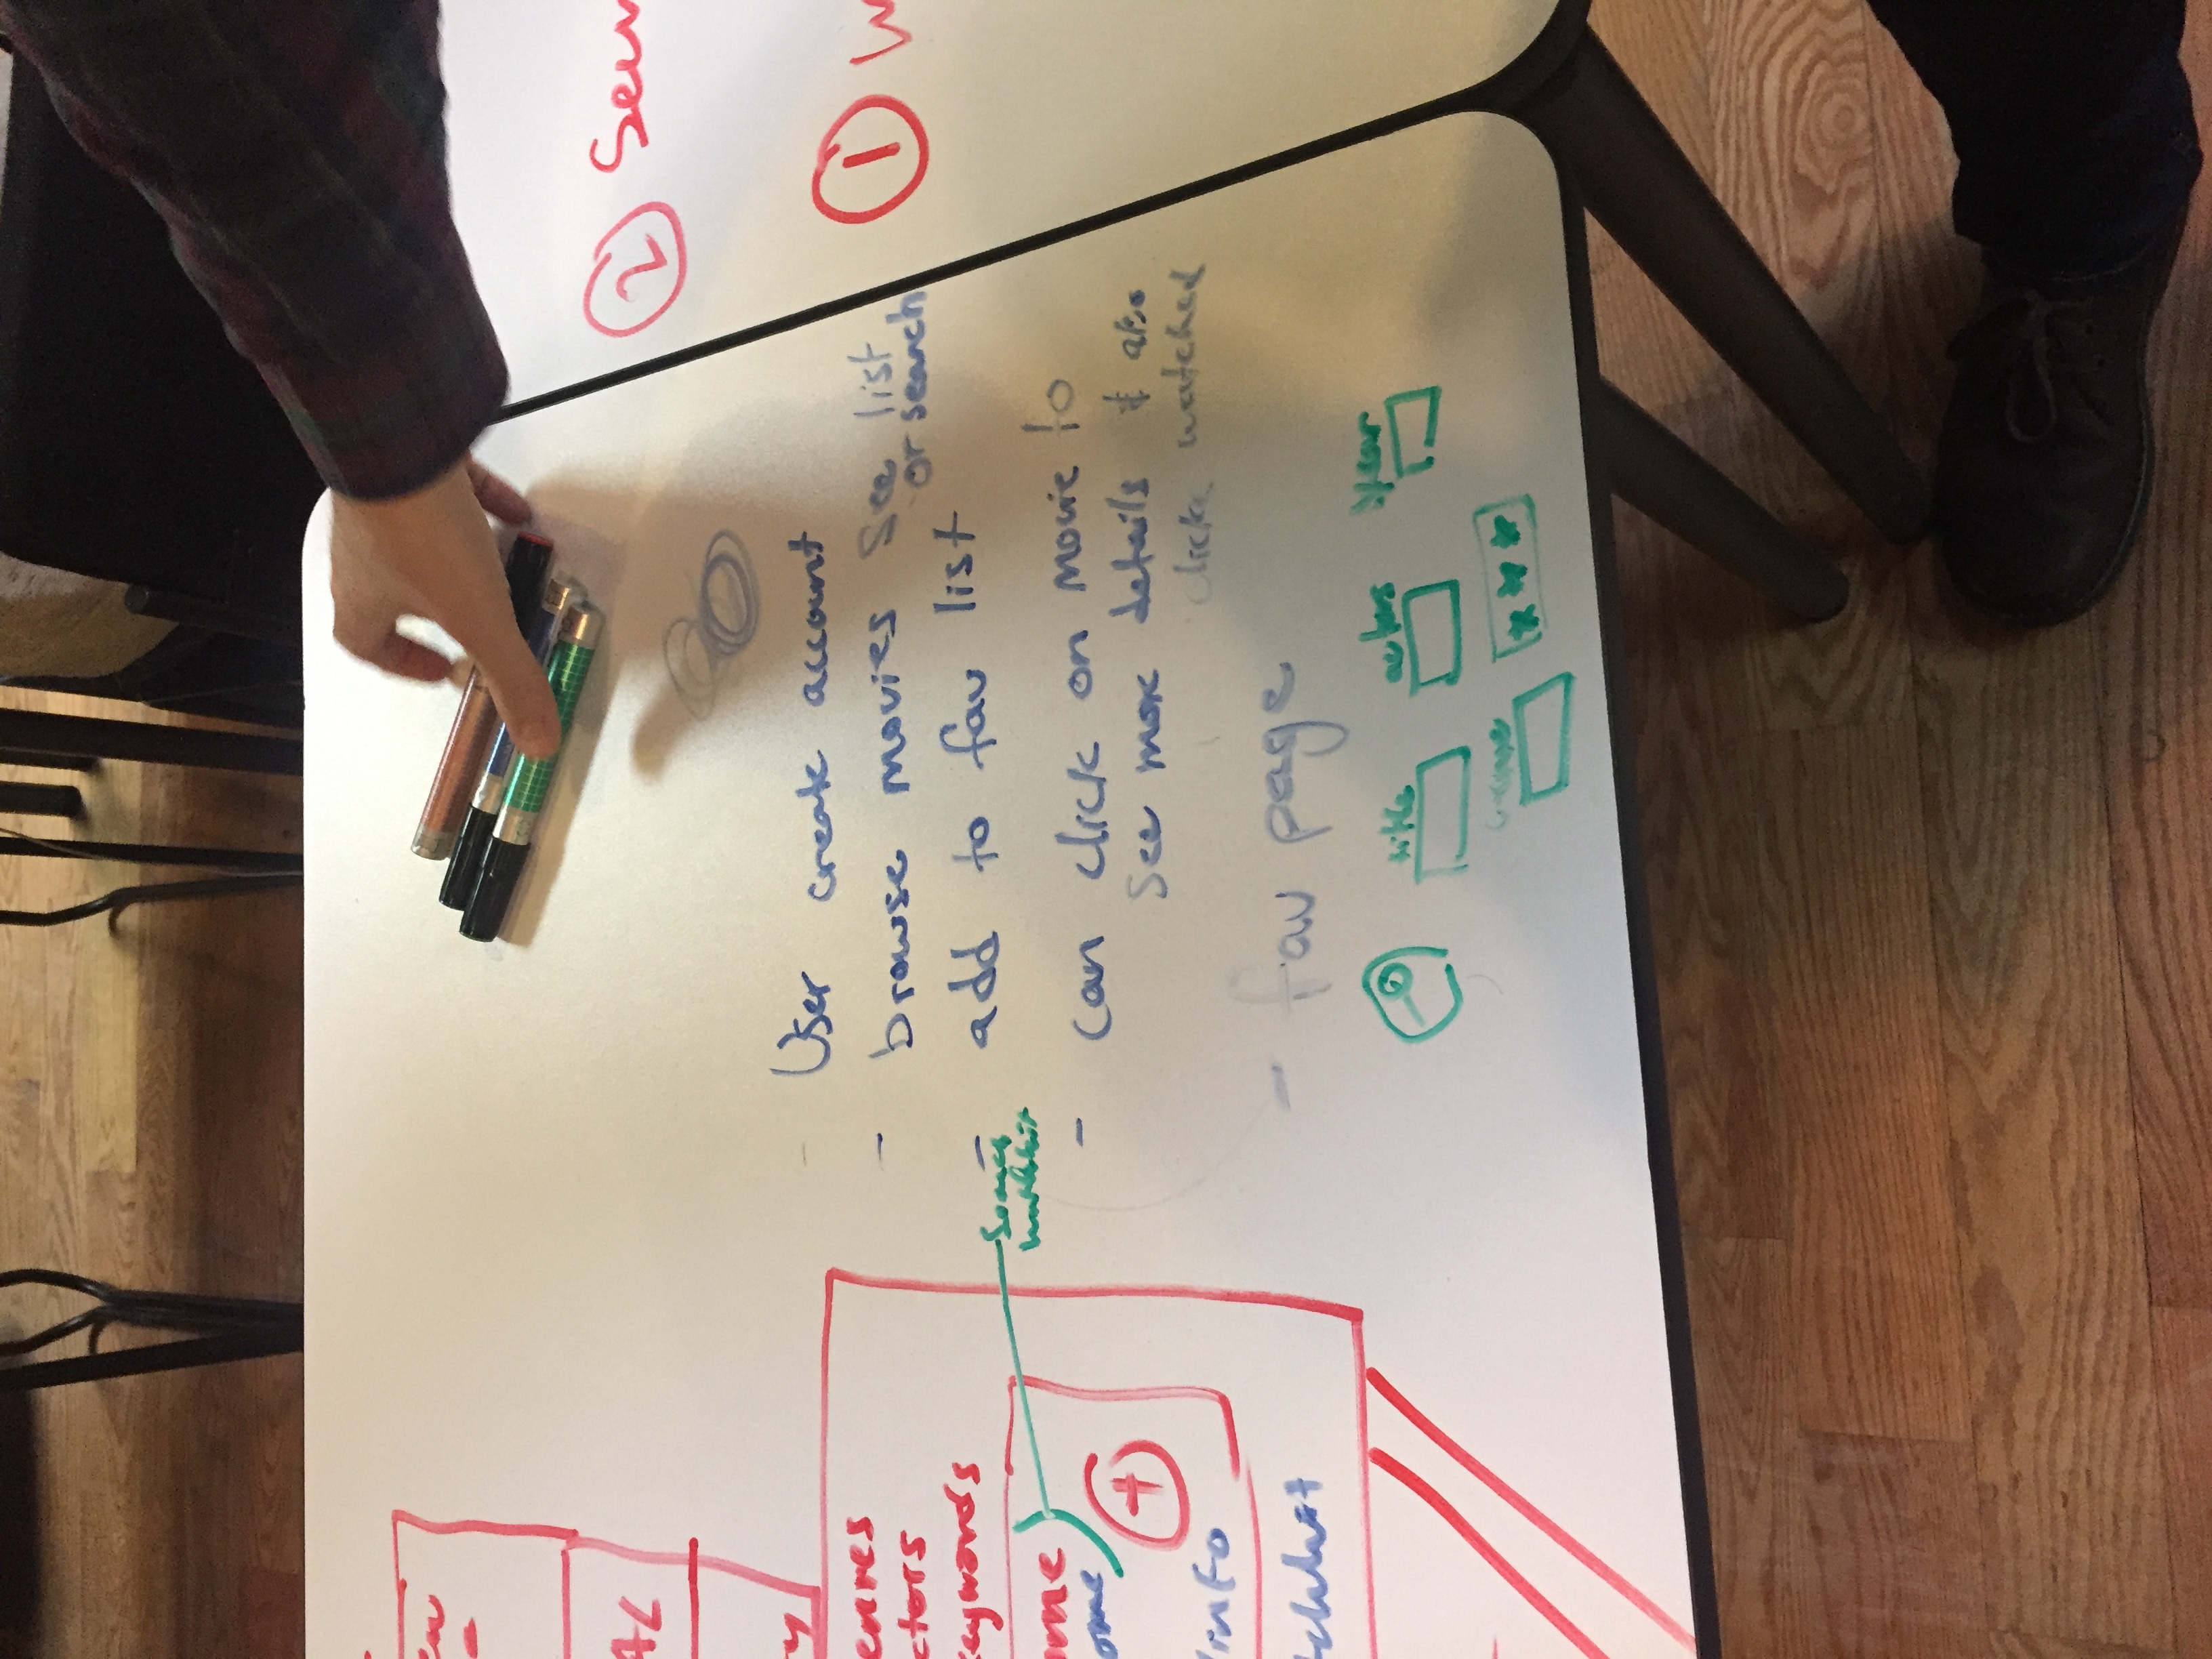 AL
ty
enres
ctors
keywords
ome
ome
+
/info
- User create account
- browse movies see list
or search
- add to fav list
search
- can click on movie to
see more details & also
click watched
- fav page
title
actors
year
② Sear
①